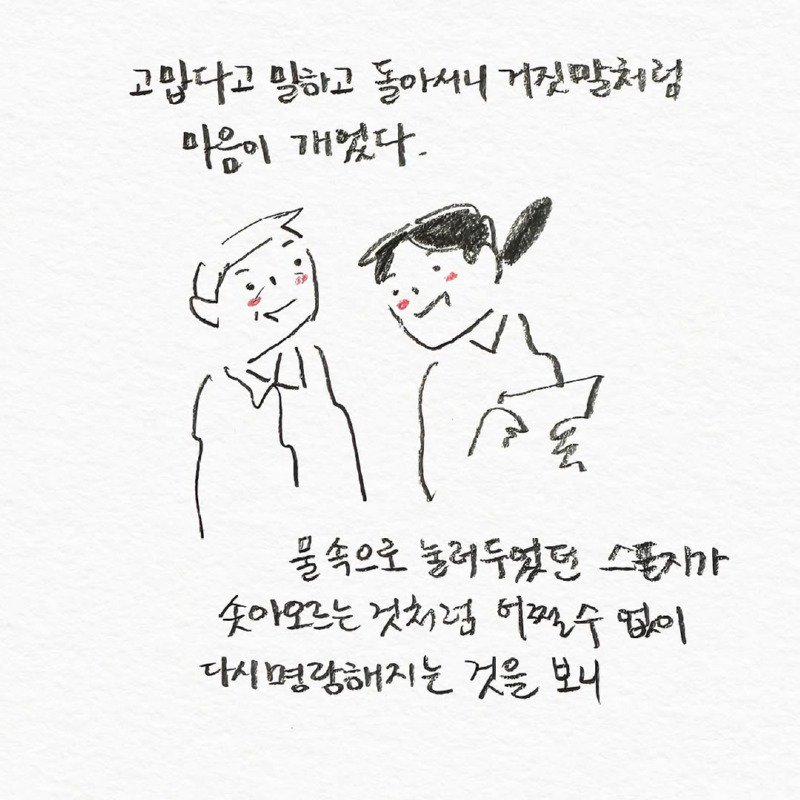 고맙다고 말하고 돌아서니 거짓말처럼
마음이 개었다.
물속으로 눌러두었던 스폰지가
솟아오르는 것처럼 어쩔수 없이
다시명랑해지는 것을 보니